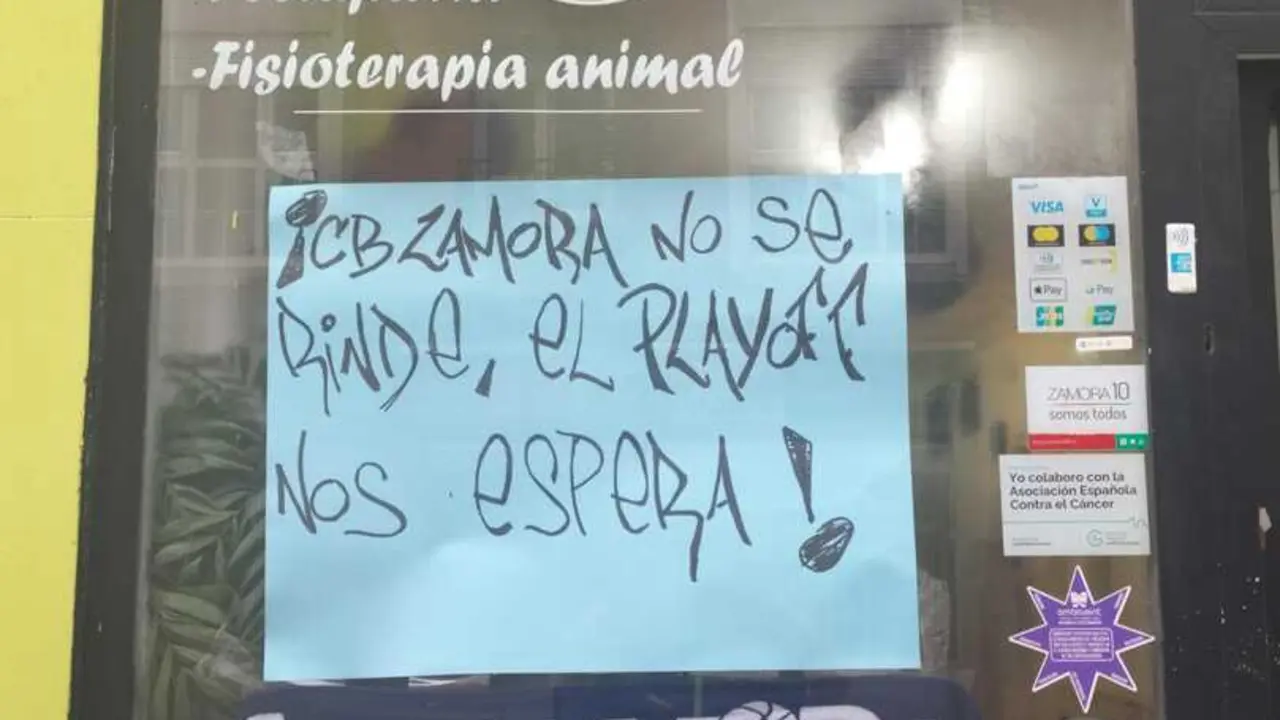 -Fisioterapia animal
¡CB ZAMORA NO SE
RINDE, EL PLAYOFF
NOS ESPERA!
VISA
V
Pay
Pay
ZAMORA 10
somos todos
Yo colaboro con la
Asociación Española
Contra el Cáncer